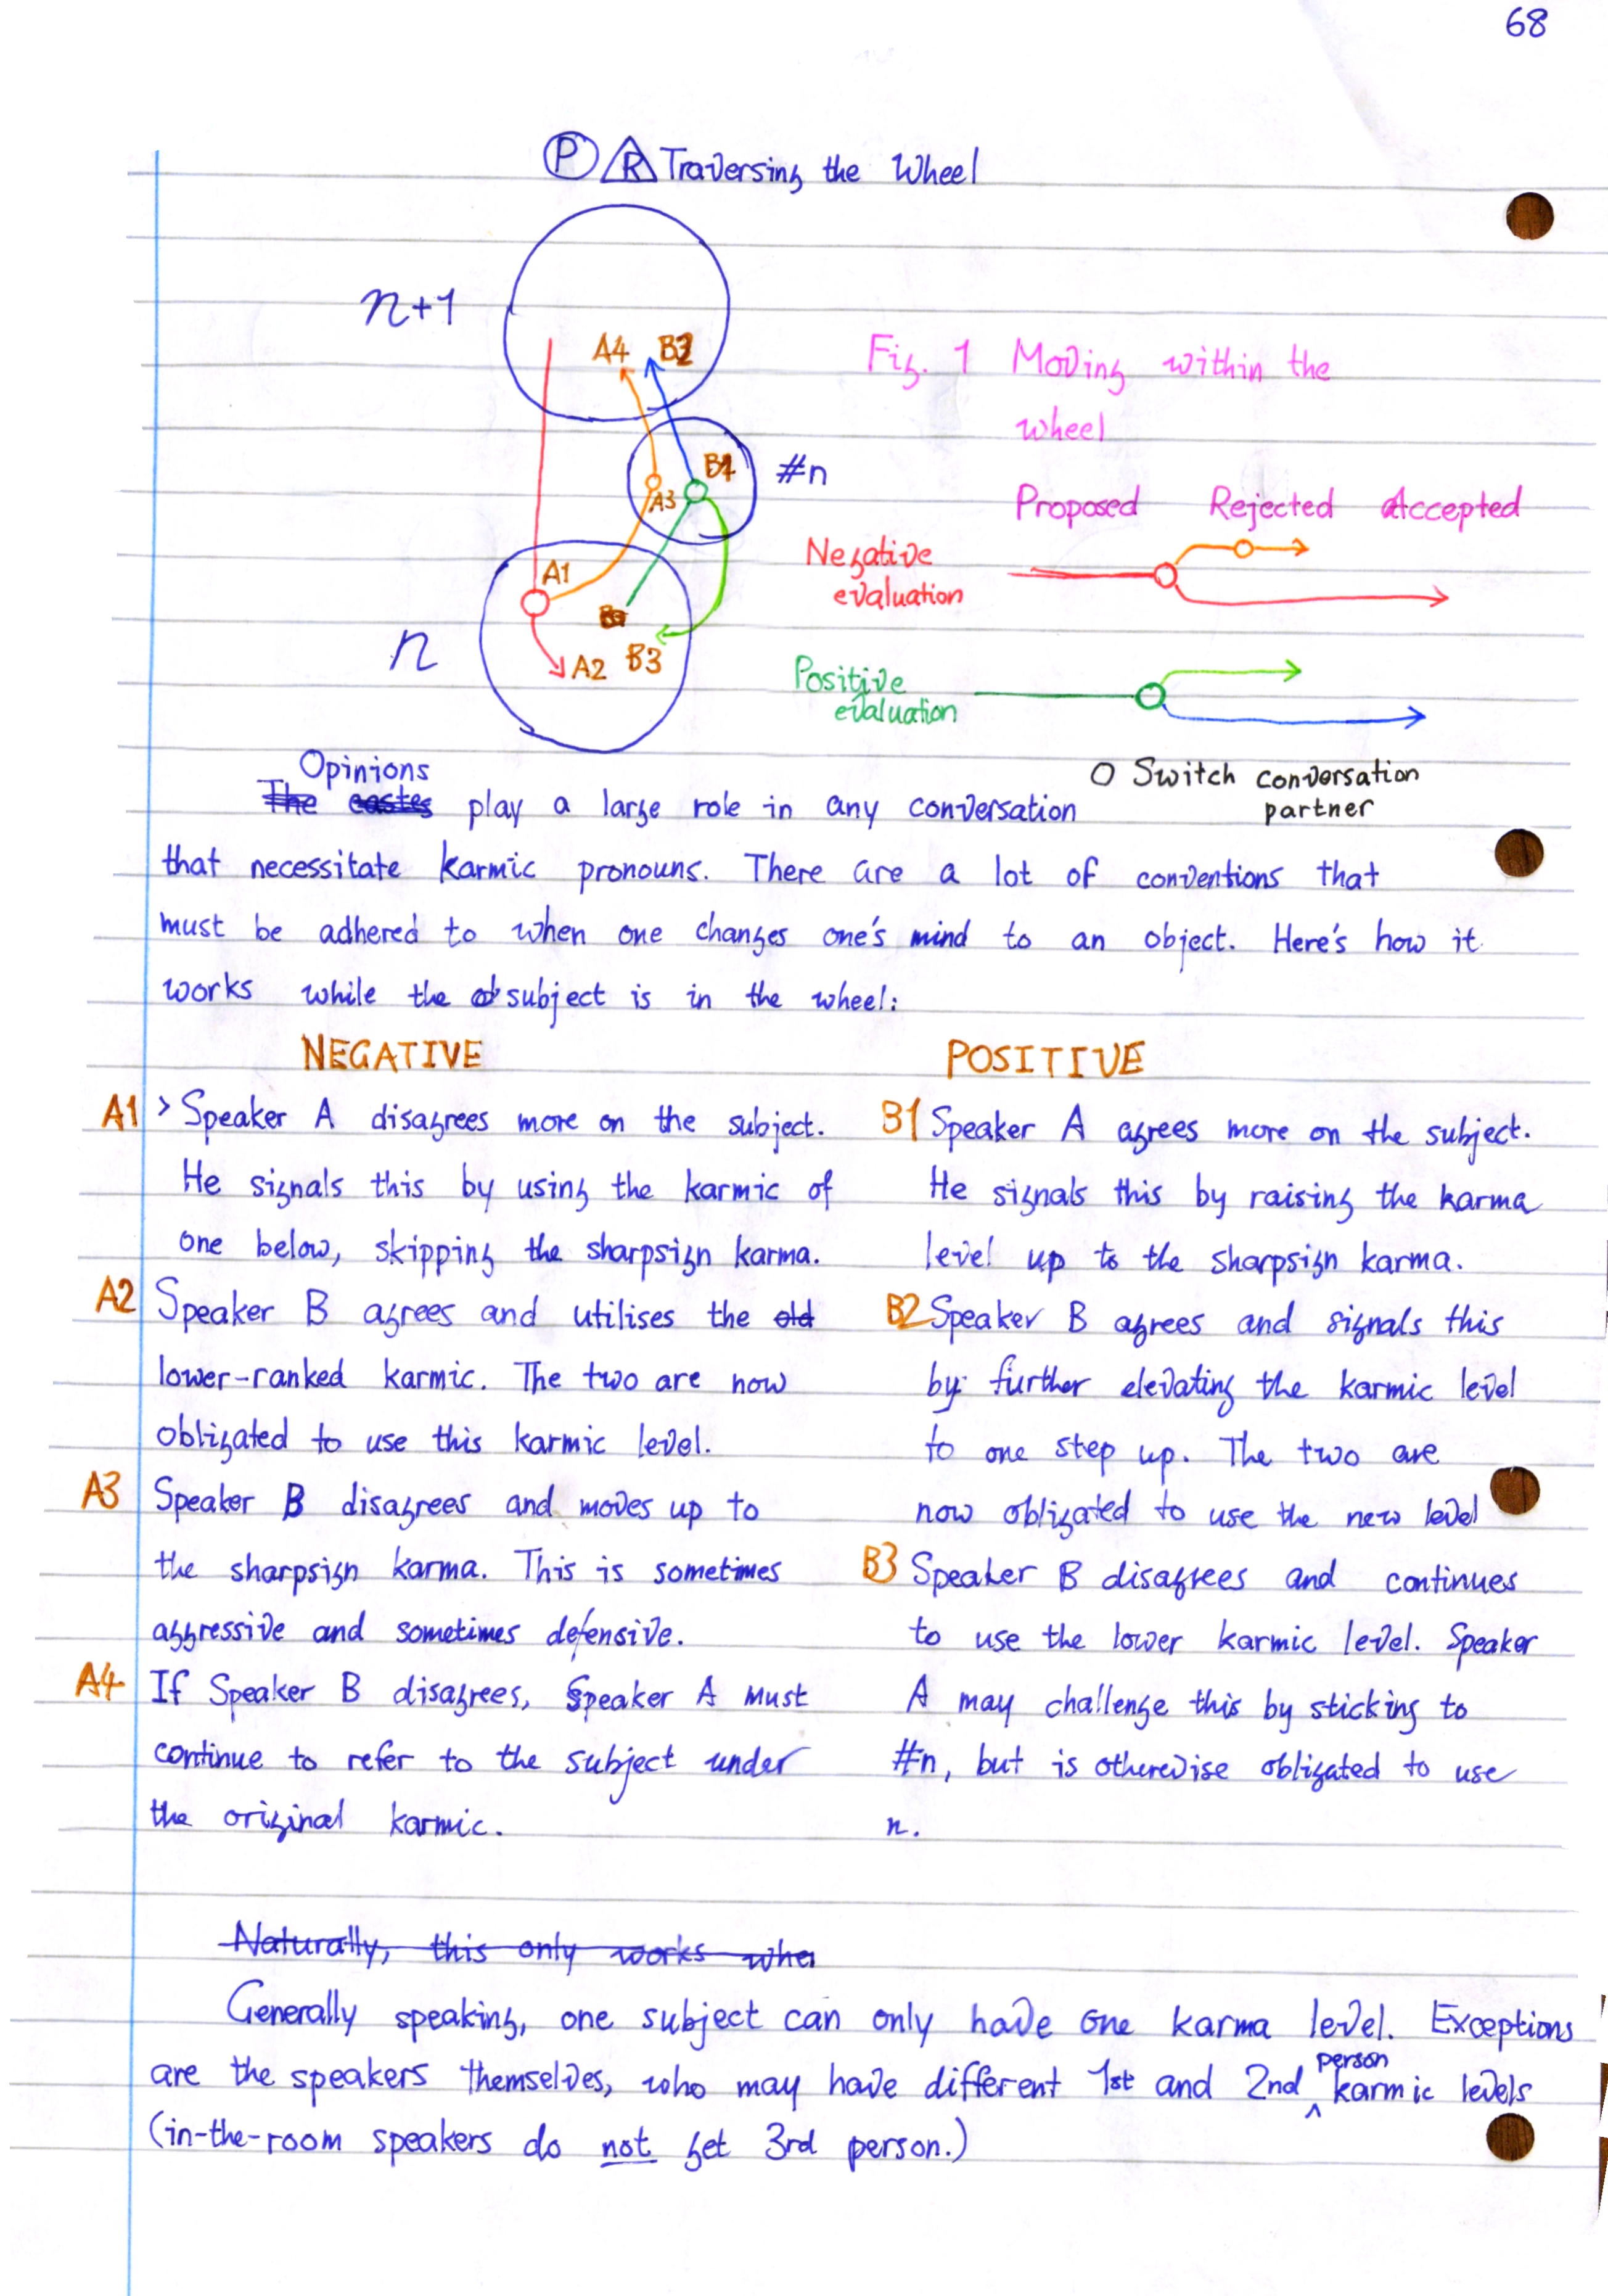 68
P R Traversing the Wheel
n+1
A4 B2
Fig. 1 Moving within the
wheel
B1
#n
A3
Proposed Rejected Accepted
Negative
evaluation
A1
n
A2 B3
Positive
evaluation
O Switch conversation
partner
Opinions
The castes play a large role in any conversation
that necessitate karmic pronouns. There are a lot of conventions that
must be adhered to when one changes one's mind to an object. Here's how it
works while the ob subject is in the wheel:
NEGATIVE
A1 > Speaker A disagrees more on the subject.
He signals this by using the karmic of
one below, skipping the sharpsign karma.
A2 Speaker B agrees and utilises the old
lower-ranked karmic. The two are now
obligated to use this karmic level.
A3 Speaker B disagrees and moves up to
the sharpsign karma. This is sometimes
aggressive and sometimes defensive.
A4 If Speaker B disagrees, Speaker A must
continue to refer to the subject under
the original karmic.
POSITIVE
B1 Speaker A agrees more on the subject.
He signals this by raising the karma
level up to the sharpsign karma.
B2 Speaker B agrees and signals this
by further elevating the karmic level
to one step up. The two are
now obligated to use the new level
B3 Speaker B disagrees and continues
to use the lower karmic level. Speaker
A may challenge this by sticking to
#n, but is otherwise obligated to use
n.
Naturally, this only works whe
Generally speaking, one subject can only have one karma level. Exceptions
are the speakers themselves, who may have different 1st and 2nd person karmic levels
(in-the-room speakers do not get 3rd person.)